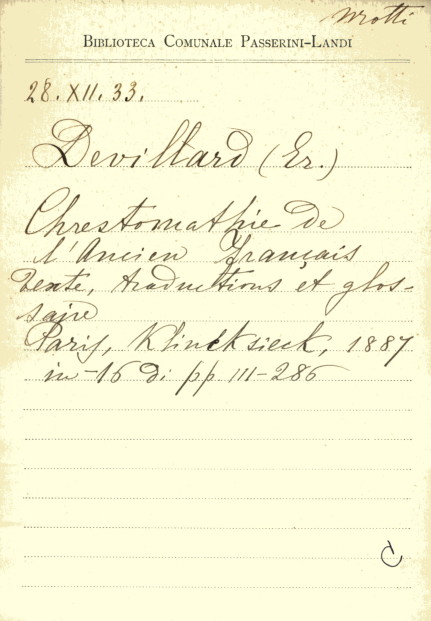 Mrotti
BIBLIOTECA COMUNALE PASSERINI-LANDI
28. XII. 33.
Devillard (Er.)
Chrestomathie de
l'Ancien Français
Texte, traductions et glos-
saire
Paris, Klincksieck, 1887
in-16 di pp III-286
C